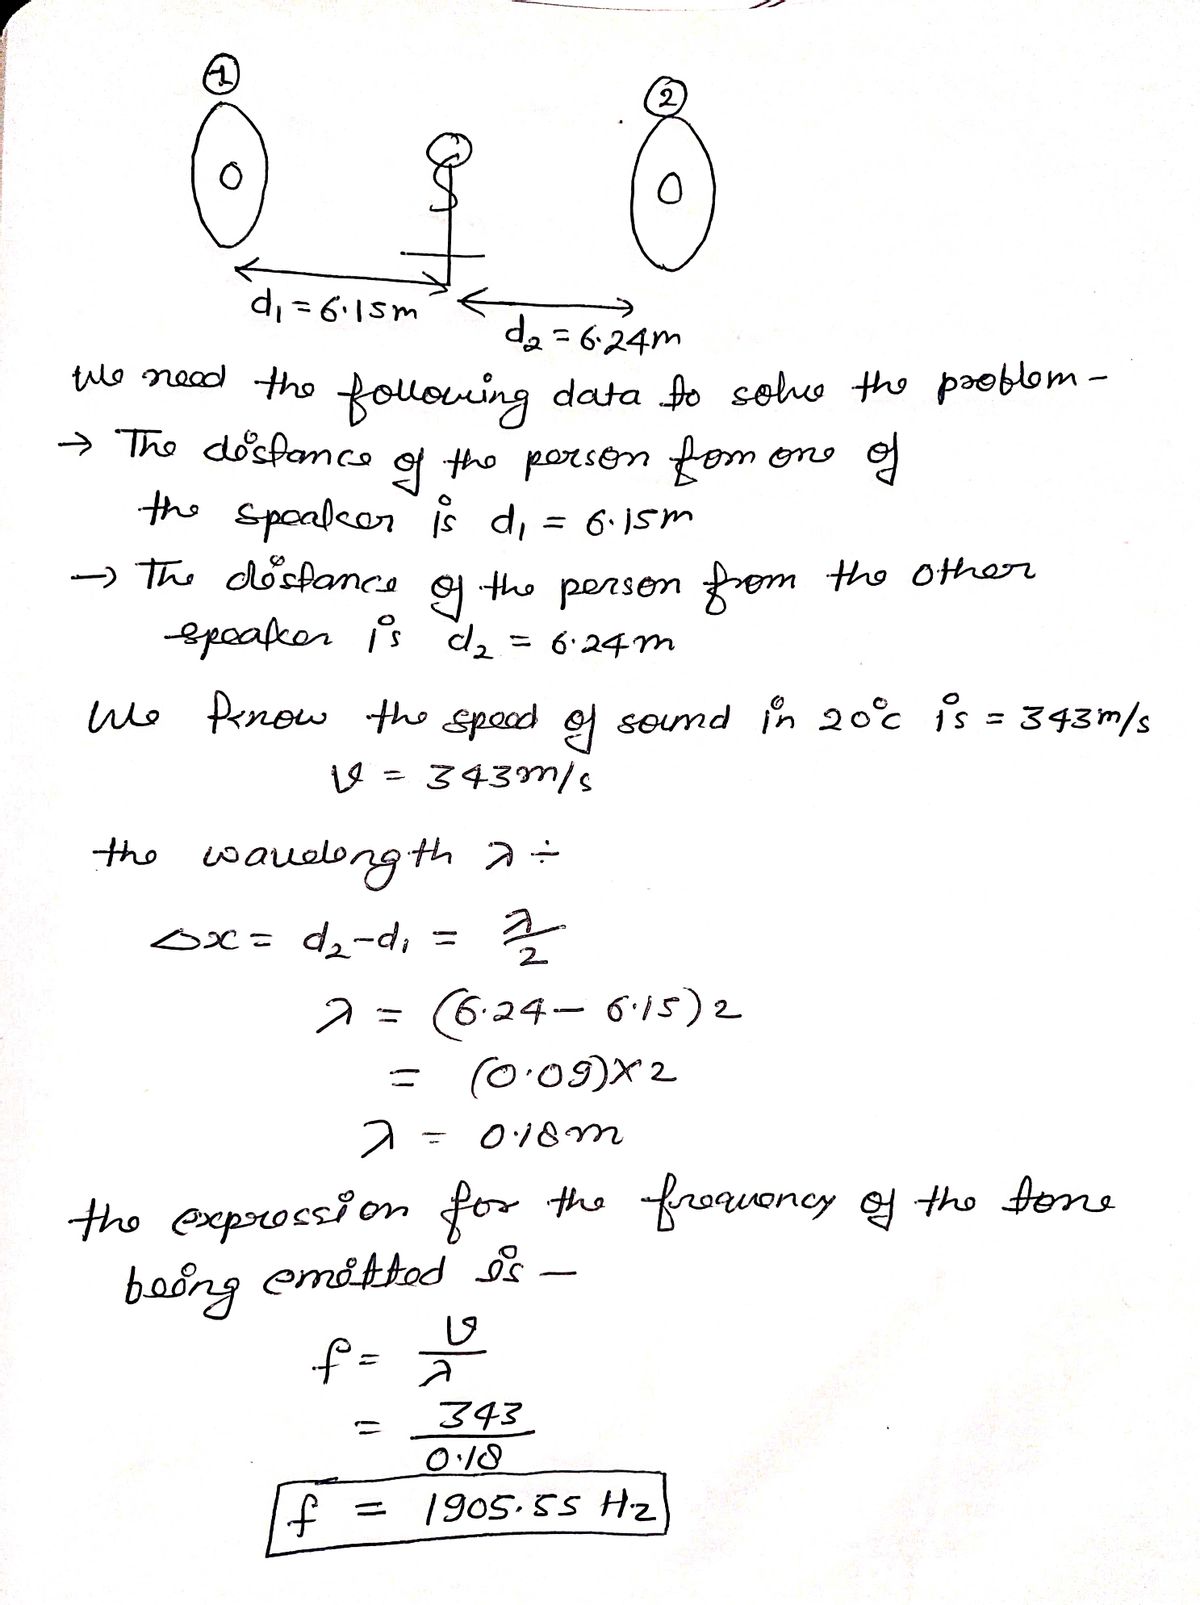 1
2
d₁ = 6.15m
d₂ = 6.24m
We need the following data to solve the problem -
→ The distance of the person fom one of
the speaker is d₁ = 6.15m
→ The distance of the person from the other
speaker is d₂ = 6.24m
We know the speed of sound in 20°c is = 343m/s
v = 343m/s
the wavelength λ ÷
Δx = d₂-d₁ = λ/2
λ = (6.24 - 6.15) 2
= (0.09)×2
λ = 0.18m
the expression for the frequency of the tone
being emitted is -
f = v/λ
= 343/0.18
f = 1905.55 Hz